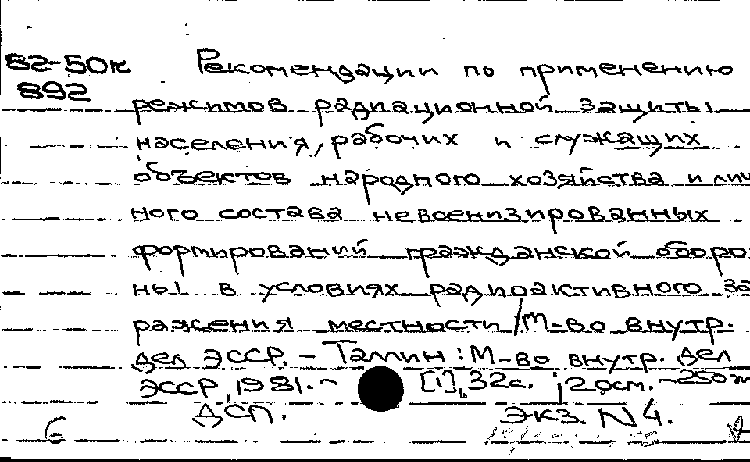 82-50к Рекомендации по применению
892 режимов радиационной защиты
населения, рабочих и служащих
объектов народного хозяйства и лич
ного состава невоенизированных
формирований гражданской оборо
ны в условиях радиоактивного за
ражения местности / М-во внутр.
дел ЭССР. - Таллин : М-во внутр. дел
ЭССР, 1981. - [1], 32с. ; 20см. - 250
ДСП. Экз. N 4.
6